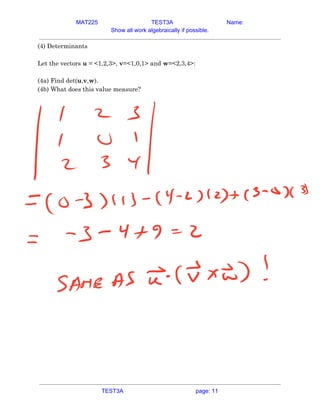 MAT225 TEST3A Name:
Show all work algebraically if possible.
(4) Determinants
Let the vectors u = <1,2,3>, v=<1,0,1> and w=<2,3,4>:
(4a) Find det(u,v,w).
(4b) What does this value measure?
| 1 2 3 |
| 1 0 1 |
| 2 3 4 |
= (0-3)(1) - (4-2)(2) + (3-0)(3)
= -3 - 4 + 9 = 2
SAME AS u⃗·(v⃗ × w⃗) !
TEST3A page: 11